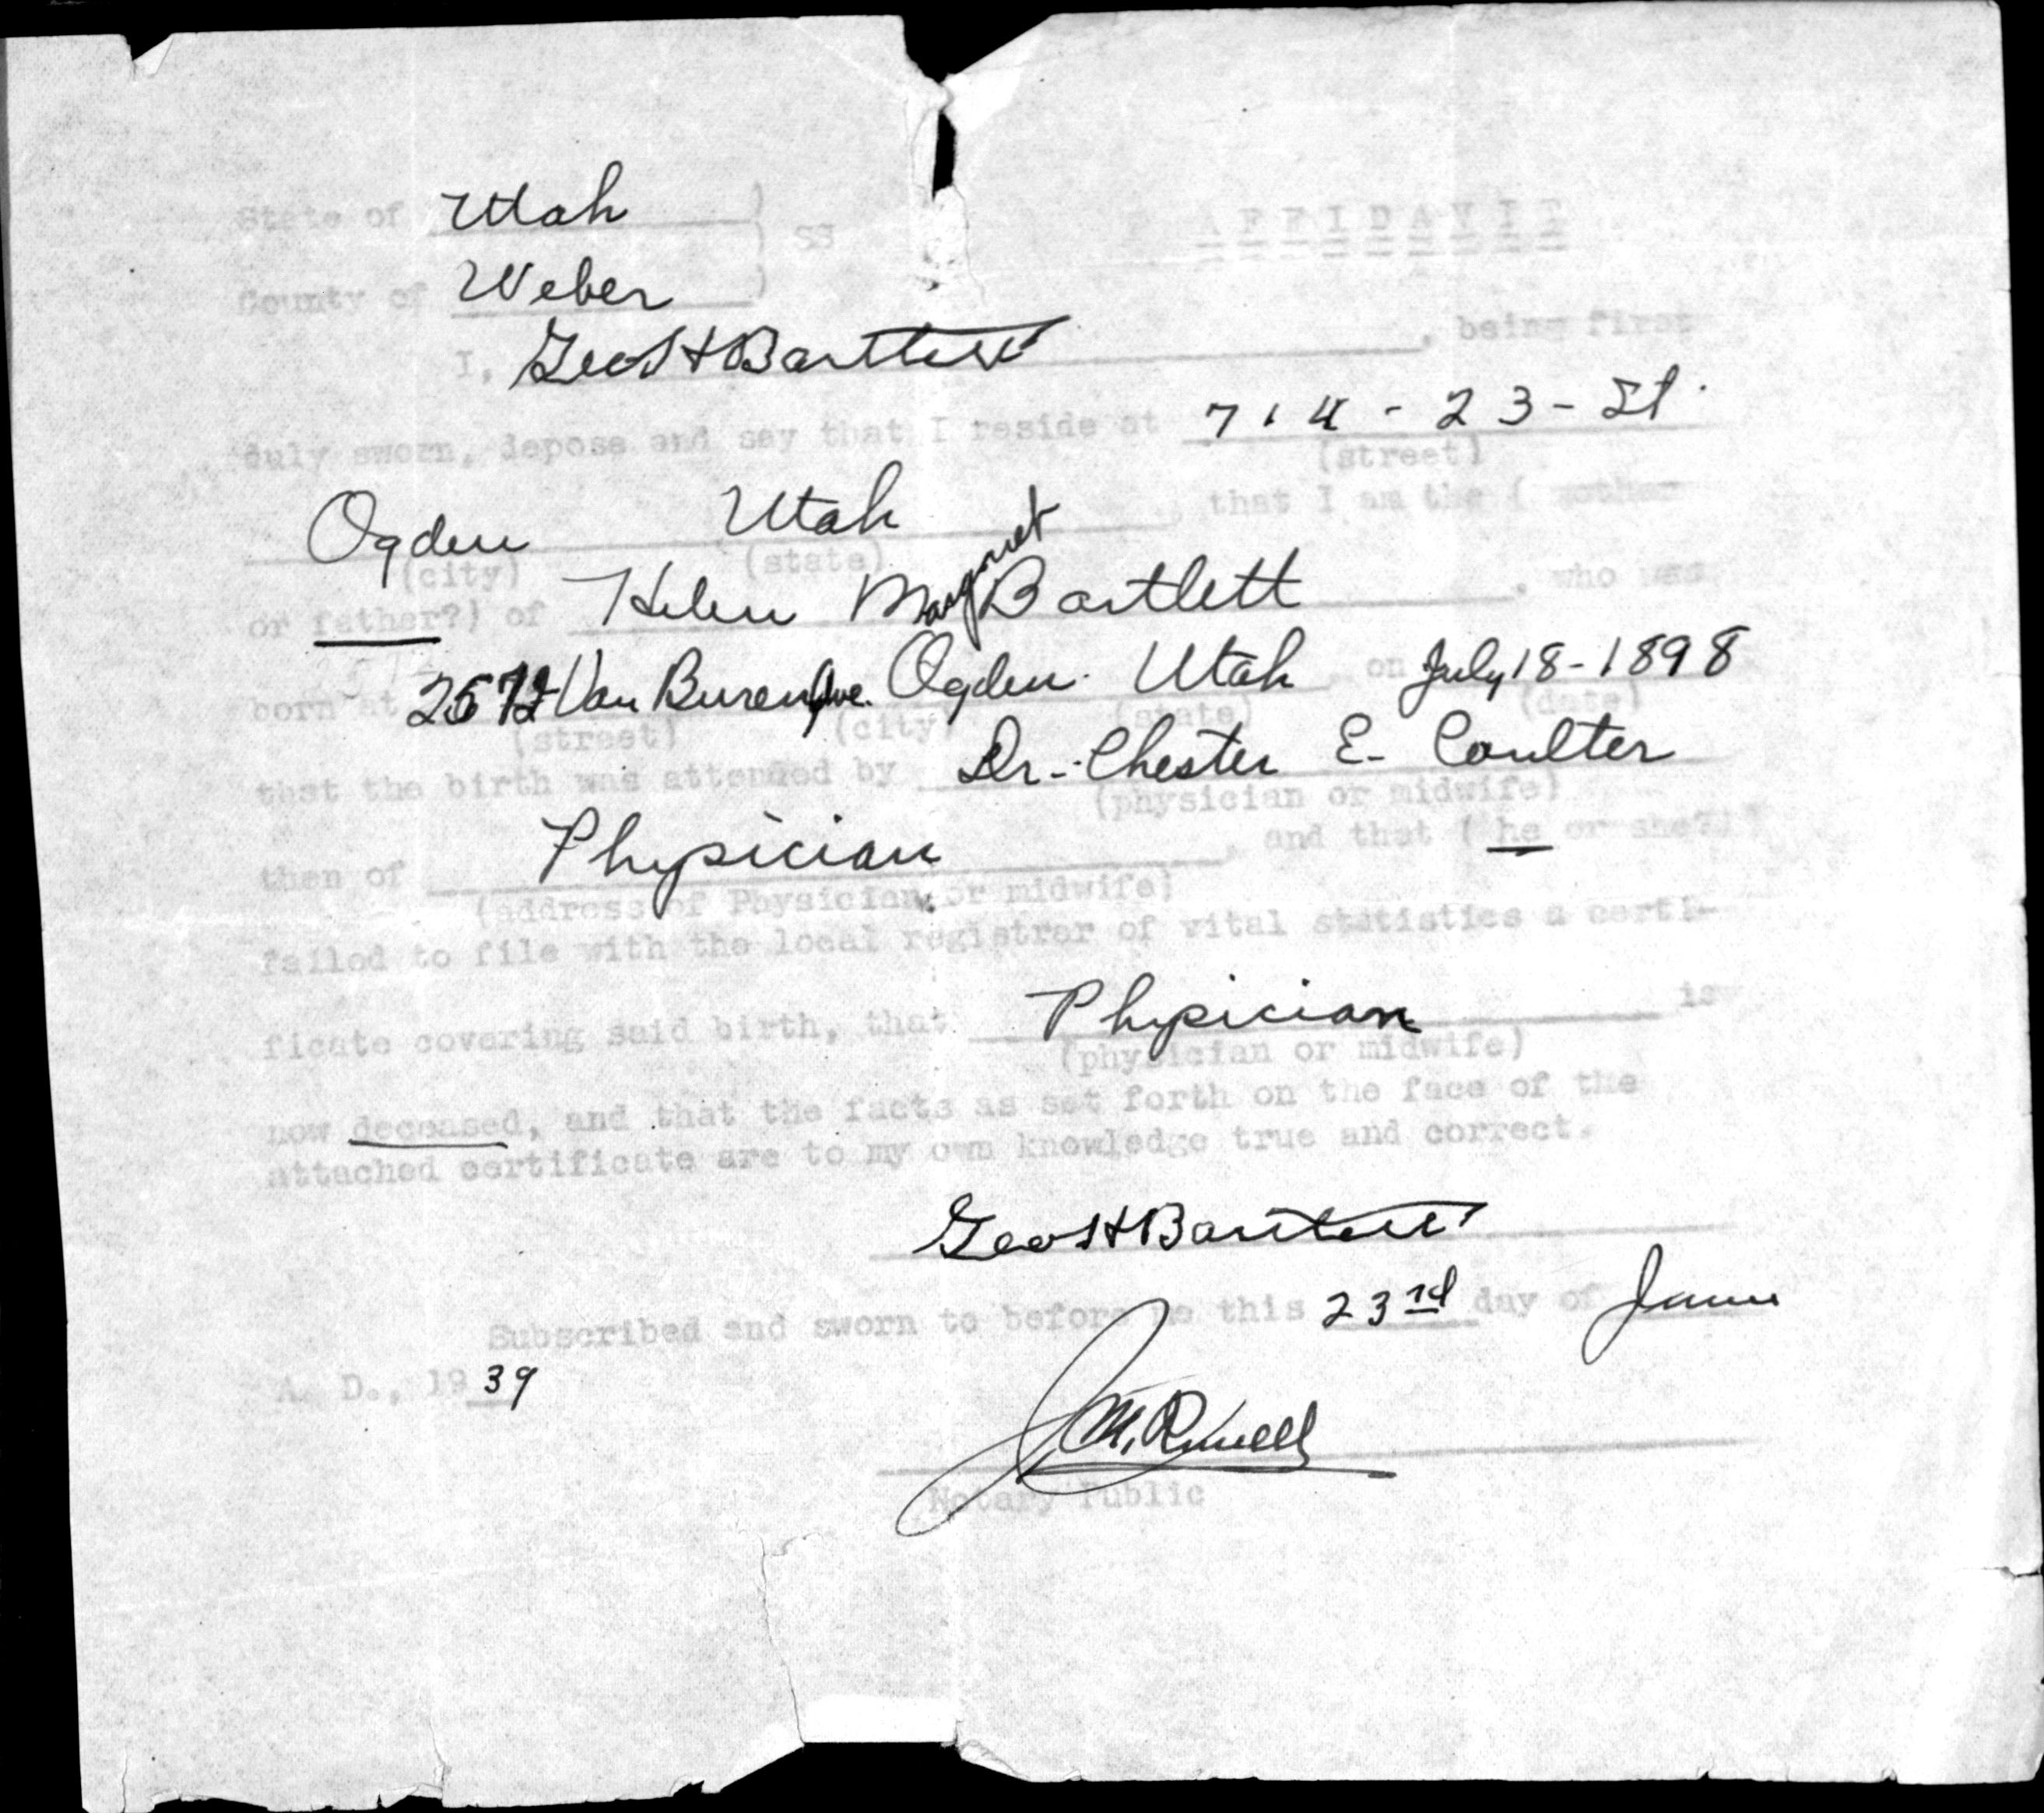 State of Utah ) AFFIDAVIT
) ss
County of Weber )
I, Geo H Bartlett, being first
duly sworn, depose and say that I reside at 714-23-St.
(street)
Ogden Utah that I am the ( mother
(city) (state)
or father?) of Helen Margaret Bartlett, who was
born at Van Buren Ave. Ogden. Utah, on July 18-1898
(street) (city) (state) (date)
that the birth was attended by Dr. Chester E. Coulter
(physician or midwife)
then of Physician, and that ( he or she?)
(address of Physician or midwife)
failed to file with the local registrar of vital statistics a certi-
ficate covering said birth, that Physician is
(physician or midwife)
now deceased, and that the facts as set forth on the face of the
attached certificate are to my own knowledge true and correct.
Geo H Bartlett
Subscribed and sworn to before me this 23rd day of June
A. D., 1939
Notary Public